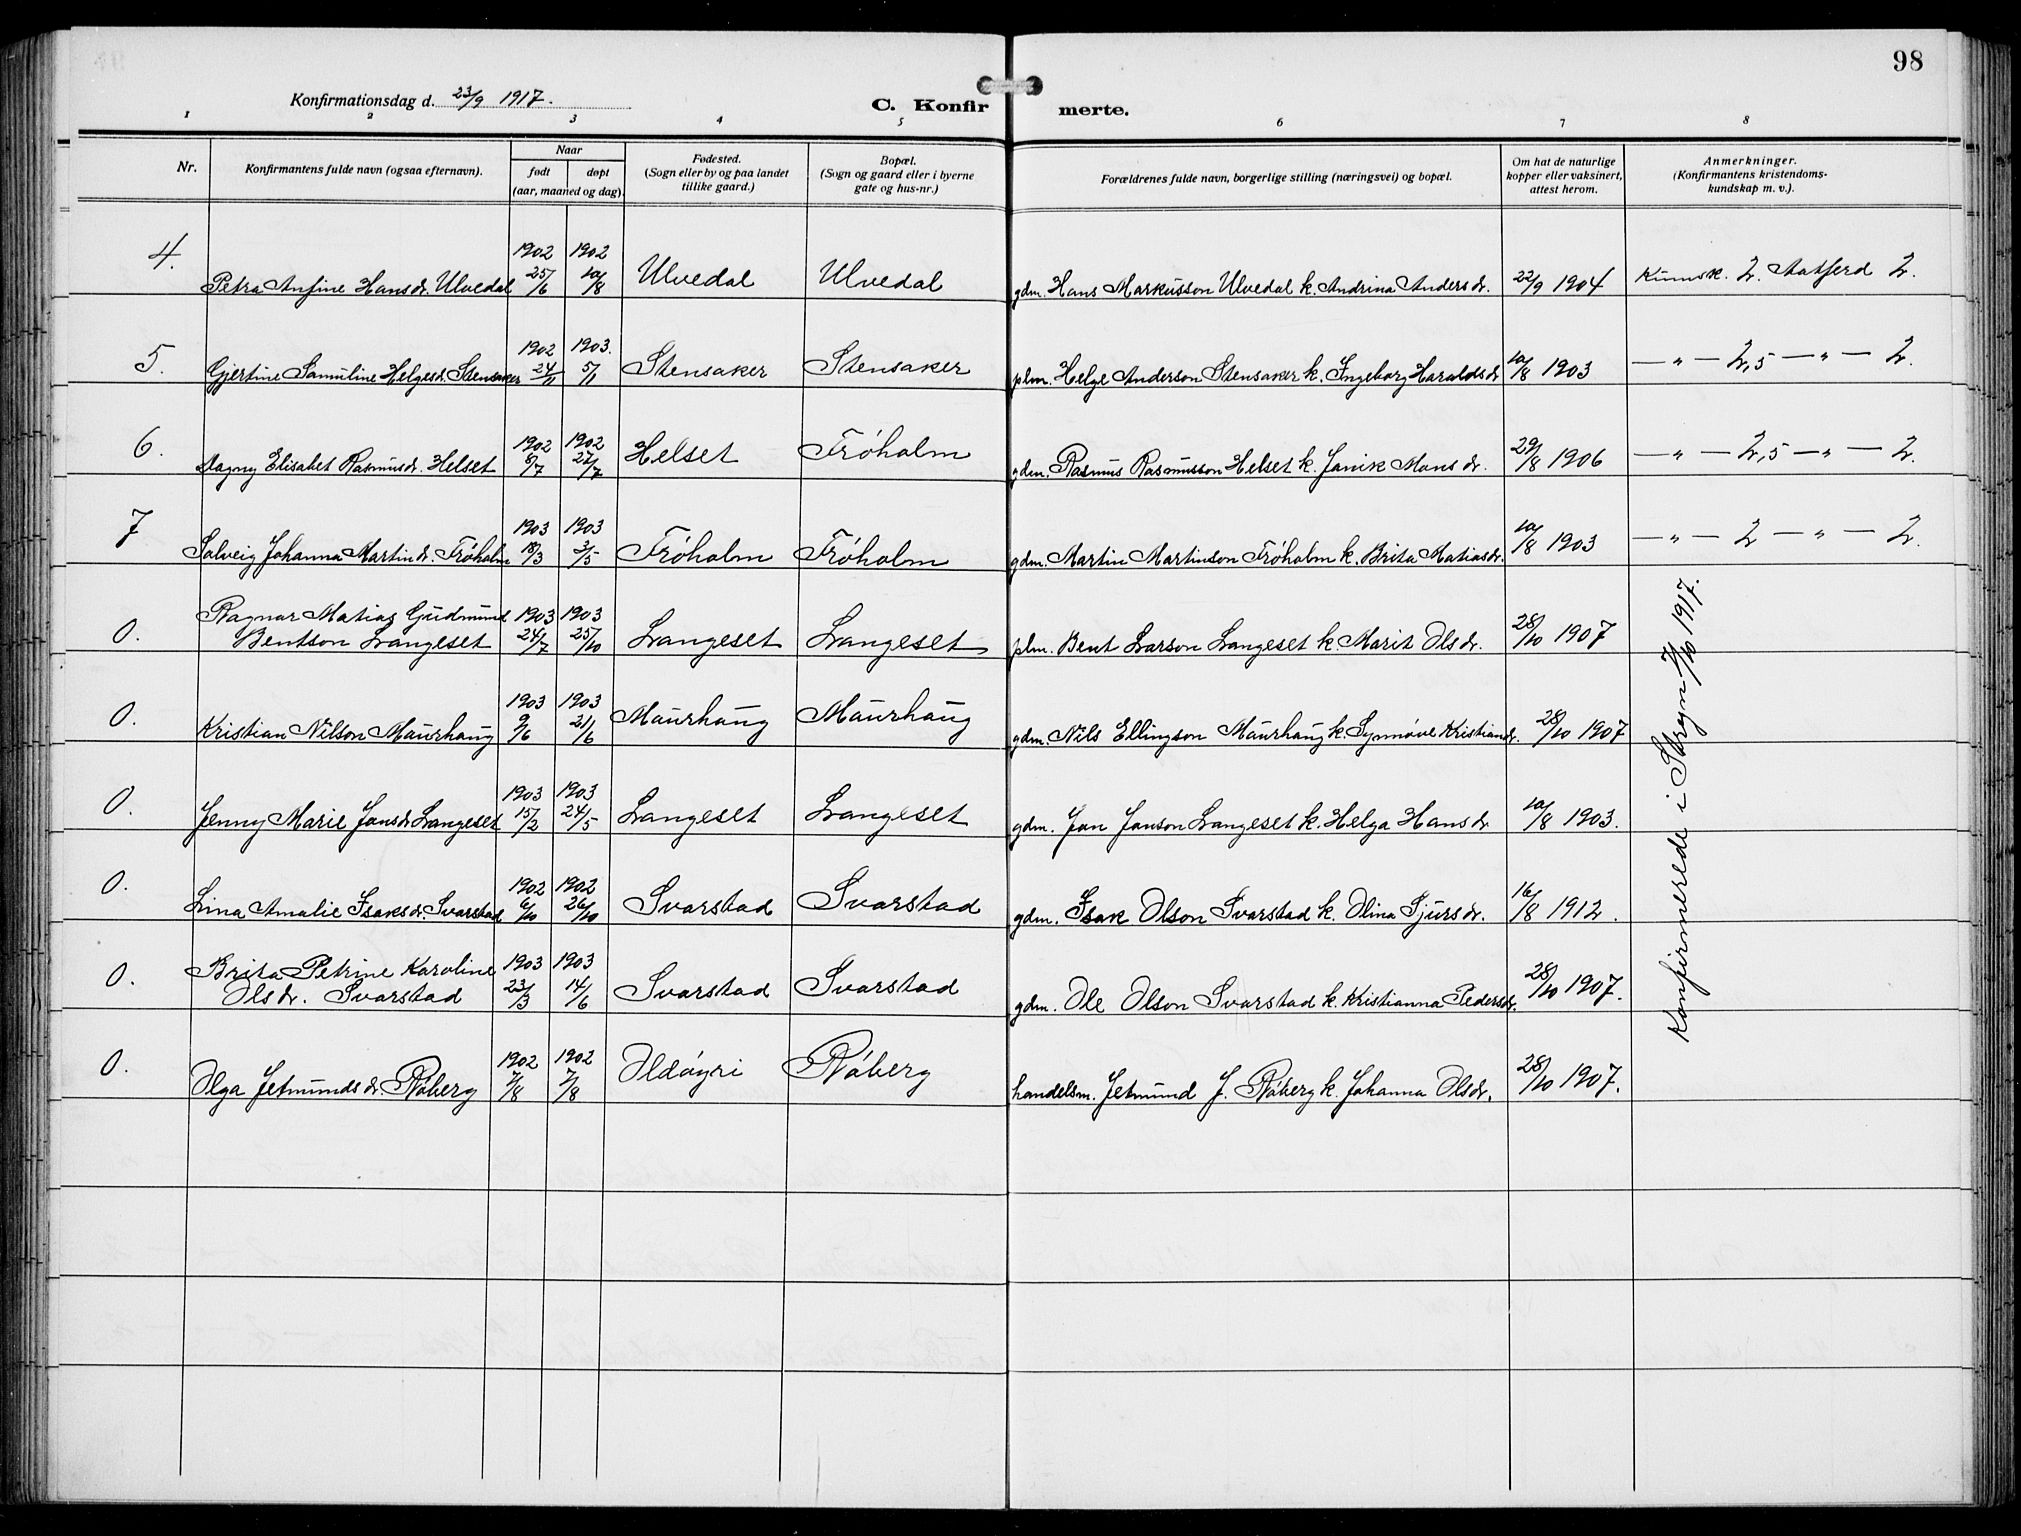 98
Konfirmationsdag d. 23/9 1917.
C. Konfir merte.
1 2 3 4 5 6 7 8
Nr. | Konfirmantens fulde navn (ogsaa efternavn). | Naar født døpt (aar, maaned og dag). | Fødested. (Sogn eller by og paa landet tillike gaard.) | Bopæl. (Sogn og gaard eller i byerne gate og hus-nr.) | Forældrenes fulde navn, borgerlige stilling (næringsvei) og bopæl. | Om hat de naturlige kopper eller vaksinert, attest herom. | Anmerkninger. (Konfirmantens kristendomskundskap m. v.).
4. Petra Anfine Hansdr. Ulvedal 1902 25/6 1902 10/8 Ulvedal Ulvedal gdm. Hans Markusson Ulvedal k. Andrina Andersdr. 22/9 1904 Kunnsk. 2. Aatferd 2.
5. Gjertine Samuline Helgesdr. Stensaker 1902 24/11 1903. 5/1 Stensaker Stensaker plm. Helge Anderson Stensaker k. Ingeborg Haraldsdr 10/8 1903 — " — 2,5 — " — 2.
6. Dagny Elisabet Rasmusdr. Helset 1902 8/7 1902 27/7 Helset Frøholm gdm. Rasmus Rasmusson Helset k. Janik Monsdr. 29/8 1906 — " — 2,5 — " — 2.
7 Solveig Johanna Martindr. Frøholm 1903 18/3 1903 3/5 Frøholm Frøholm gdm. Martin Martinson Frøholm k. Brita Matiasdr. 10/8 1903 — " — 2 — " — 2.
0. Ragnar Matias Gudmund
Bentson Langeset 1903 24/7 1903 25/10 Langeset Langeset plm. Bent Larson Langeset k Marit Olsdr. 28/10 1907
0. Kristian Nilson Maurhaug 1903 9/6 1903 21/6 Maurhaug Maurhaug gdm. Nils Ellingson Maurhaug k. Synnøve Kristiandr. 28/10 1907
0. Jenny Marie Jonsdr Langeset 1903 15/2 1903 24/5 Langeset Langeset gdm. Jon Jonson Langeset k. Helga Hansdr 10/8 1903.
0. Lina Amalie Isaksdr. Svarstad 1902 6/10 1902 26/10 Svarstad Svarstad gdm. Isak Olson Svarstad k. Olina Sjursdr. 16/8 1912.
0. Brita Petrine Karoline
Olsdr. Svarstad 1903 23/3 1903 14/6 Svarstad Svarstad gdm. Ole Olson Svarstad k. Kristianna Pedersdr. 28/10 1907.
0. Olga Jetmundsdr. Røberg 1902 1902 7/8 Oldøyri Røberg handelsm. Jetmund J. Røberg k. Johanna Olsdr. 28/10 1907.
Konfirmerede i Stryn 7/10 1917.